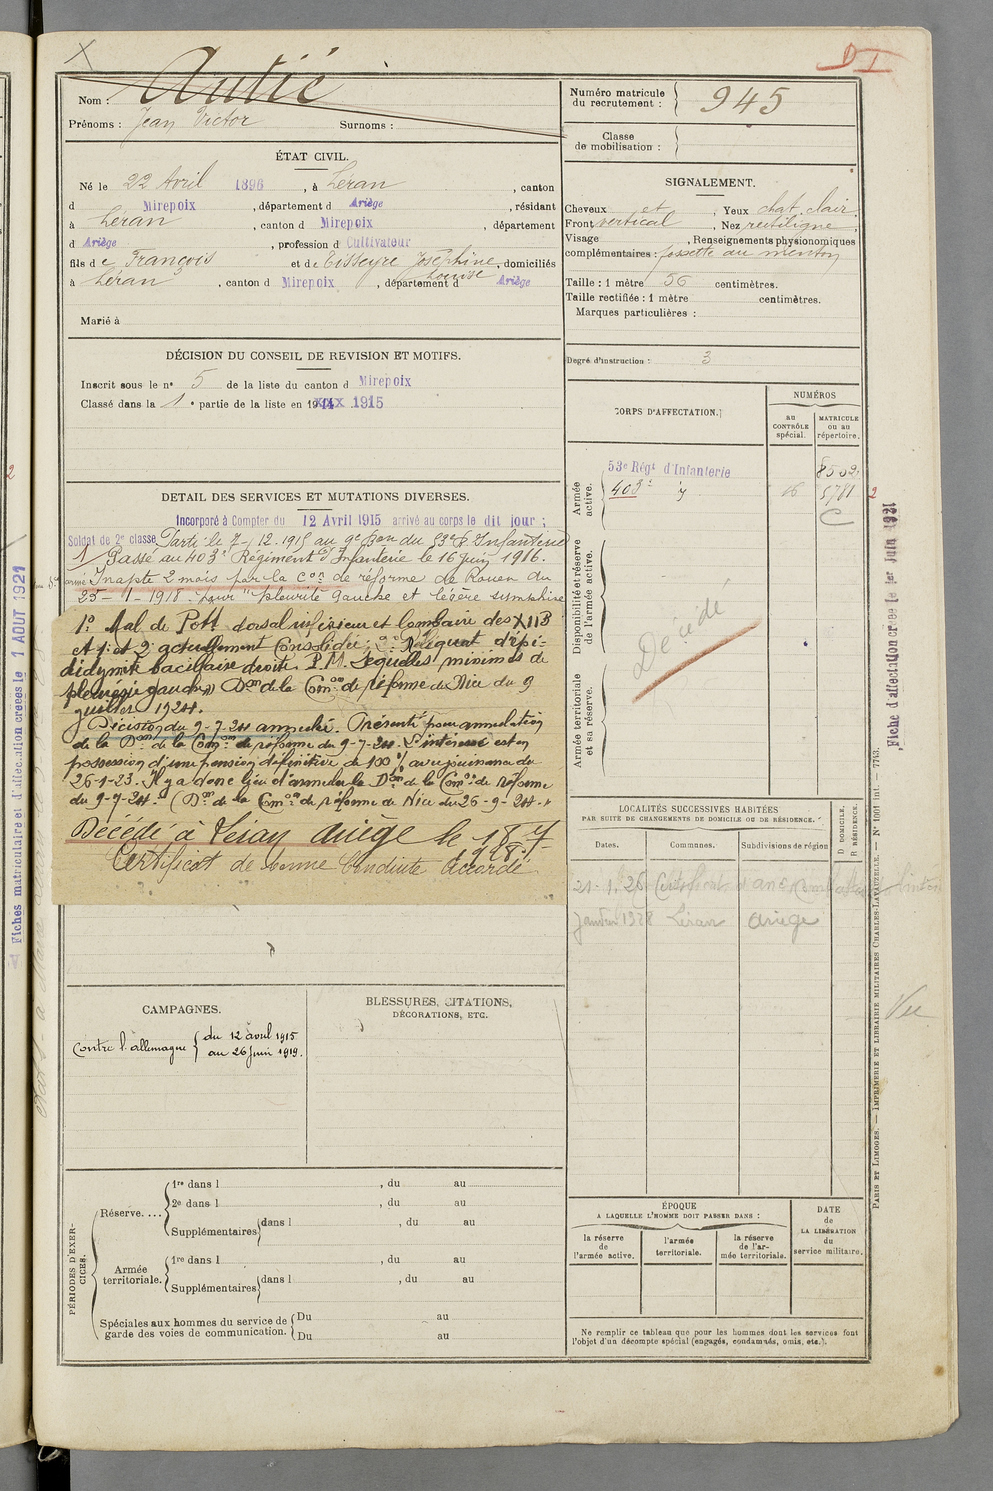 X
D I
Nom : Autié
Prénoms : Jean Victor Surnoms :
Numéro matricule du recrutement : 945
Classe de mobilisation :
ÉTAT CIVIL.
Né le 22 Avril 1896, à Léran, canton
d Mirepoix, département d Ariège, résidant
à Léran, canton d Mirepoix, département
d Ariège, profession d Cultivateur
fils de François et de Eisseyre Joséphine Louise, domiciliés
à Léran, canton d Mirepoix, département d Ariège
Marié à
SIGNALEMENT.
Cheveux et, Yeux chat. clair.
Front vertical, Nez rectiligne,
Visage, Renseignements physionomiques
complémentaires : fossette au menton
Taille : 1 mètre 56 centimètres.
Taille rectifiée : 1 mètre centimètres.
Marques particulières :
Degré d'instruction : 3
DÉCISION DU CONSEIL DE REVISION ET MOTIFS.
Inscrit sous le nº 5 de la liste du canton d Mirepoix
Classé dans la 1e partie de la liste en 1915
DETAIL DES SERVICES ET MUTATIONS DIVERSES.
Incorporé à Compter du 12 Avril 1915 arrivé au corps le dit jour ;
Soldat de 2e classe. Parti le 7-12-1915 au 9e Bon du 53e d'Infanterie
Passé au 403e Régiment d'Infanterie le 16 juin 1916.
Inapte 2 mois par la Con de réforme de Rouen du
25-1-1918 pour "pleurite gauche et légère symphise
1º Mal de Pott dorsal inférieur et lombaire des XII D
et 1 et 2 actuellement Consolidée; 2º Reliquat d'épi-
didymite bacillaire droite P.M. Sequelles minimes de
pleurésie gauche) Don de la Comon de réforme de Nice du 9
juillet 1924.
Décision du 9-7-24 annulée. Présenté pour annulation
de la Don de la Comon de réforme du 9-7-24. L'intéressé est en
possession d'une pension définitive de 100 % avec jouissance du
26-1-23. Il y a donc lieu d'annuler la Don de la Comon de réforme
du 9-7-24. (Don de la Comon de réforme de Nice du 26-9-24."
Décédé à Léran Ariège le
Certificat de bonne Conduite Accordé
CORPS D'AFFECTATION.
NUMÉROS
au CONTRÔLE spécial.
MATRICULE ou au répertoire.
Armée active.
53e Régt d'Infanterie 8502
403e 5781
2
C
Disponibilité et réserve de l'armée active.
Décédé
Armée territoriale et sa réserve.
LOCALITÉS SUCCESSIVES HABITÉES
PAR SUITE DE CHANGEMENTS DE DOMICILE OU DE RÉSIDENCE.
Dates. Communes. Subdivisions de région
D DOMICILE. R RÉSIDENCE.
21-1-26
Janvier 1928 Léran Ariège
Vu
CAMPAGNES.
Contre l'allemagne { du 12 avril 1915
au 26 juin 1919.
BLESSURES, CITATIONS,
DÉCORATIONS, ETC.
PÉRIODES D'EXERCICES.
Réserve....
1re dans l, du au
2e dans l, du au
Supplémentaires dans l, du au
Armée territoriale.
1re dans l, du au
Supplémentaires dans l, du au
Spéciales aux hommes du service de garde des voies de communication.
Du au
Du au
ÉPOQUE
A LAQUELLE L'HOMME DOIT PASSER DANS :
la réserve de l'armée active.
l'armée territoriale.
la réserve de l'armée territoriale.
DATE de LA LIBÉRATION du service militaire.
Ne remplir ce tableau que pour les hommes dont les services font
l'objet d'un décompte spécial (engagés, condamnés, omis, etc.).
PARIS ET LIMOGES. — IMPRIMERIE ET LIBRAIRIE MILITAIRES CHARLES-LAVAUZELLE. — Nº 1001 int. — 7743.
Fiche d'affectation créée le 1er Juin 1931
Fiches matriculaire et d'affectation créées le 1 AOUT 1921
2